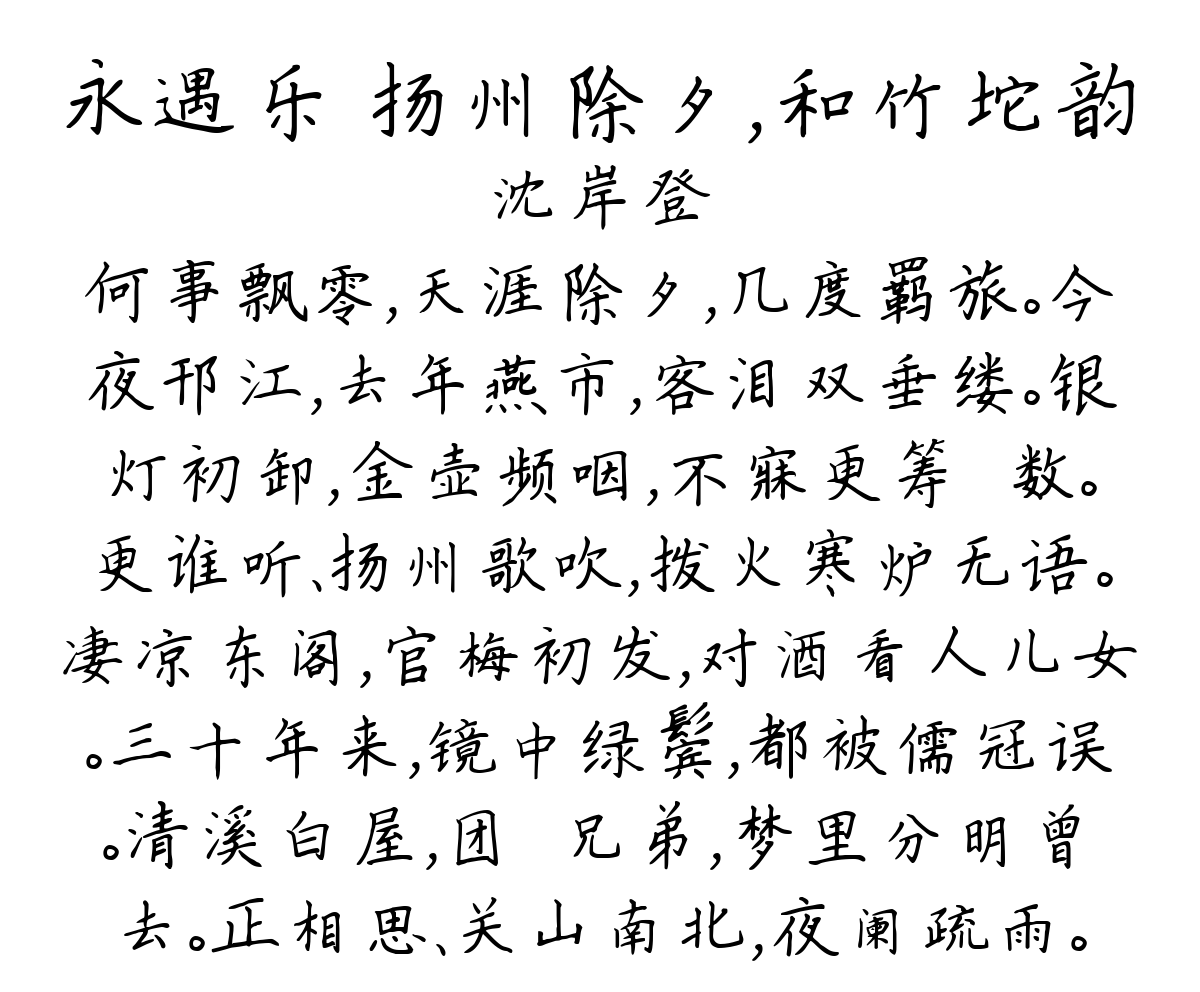 永遇乐 扬州除夕,和竹坨韵
沈岸登
何事飘零,天涯除夕,几度羁旅。今
夜邗江,去年燕市,客泪双垂缕。银
灯初卸,金壶频咽,不寐更筹 数。
更谁听、扬州歌吹,拨火寒炉无语。
凄凉东阁,官梅初发,对酒看人儿女
。三十年来,镜中绿鬓,都被儒冠误
。清溪白屋,团 兄弟,梦里分明曾
去。正相思、关山南北,夜阑疏雨。